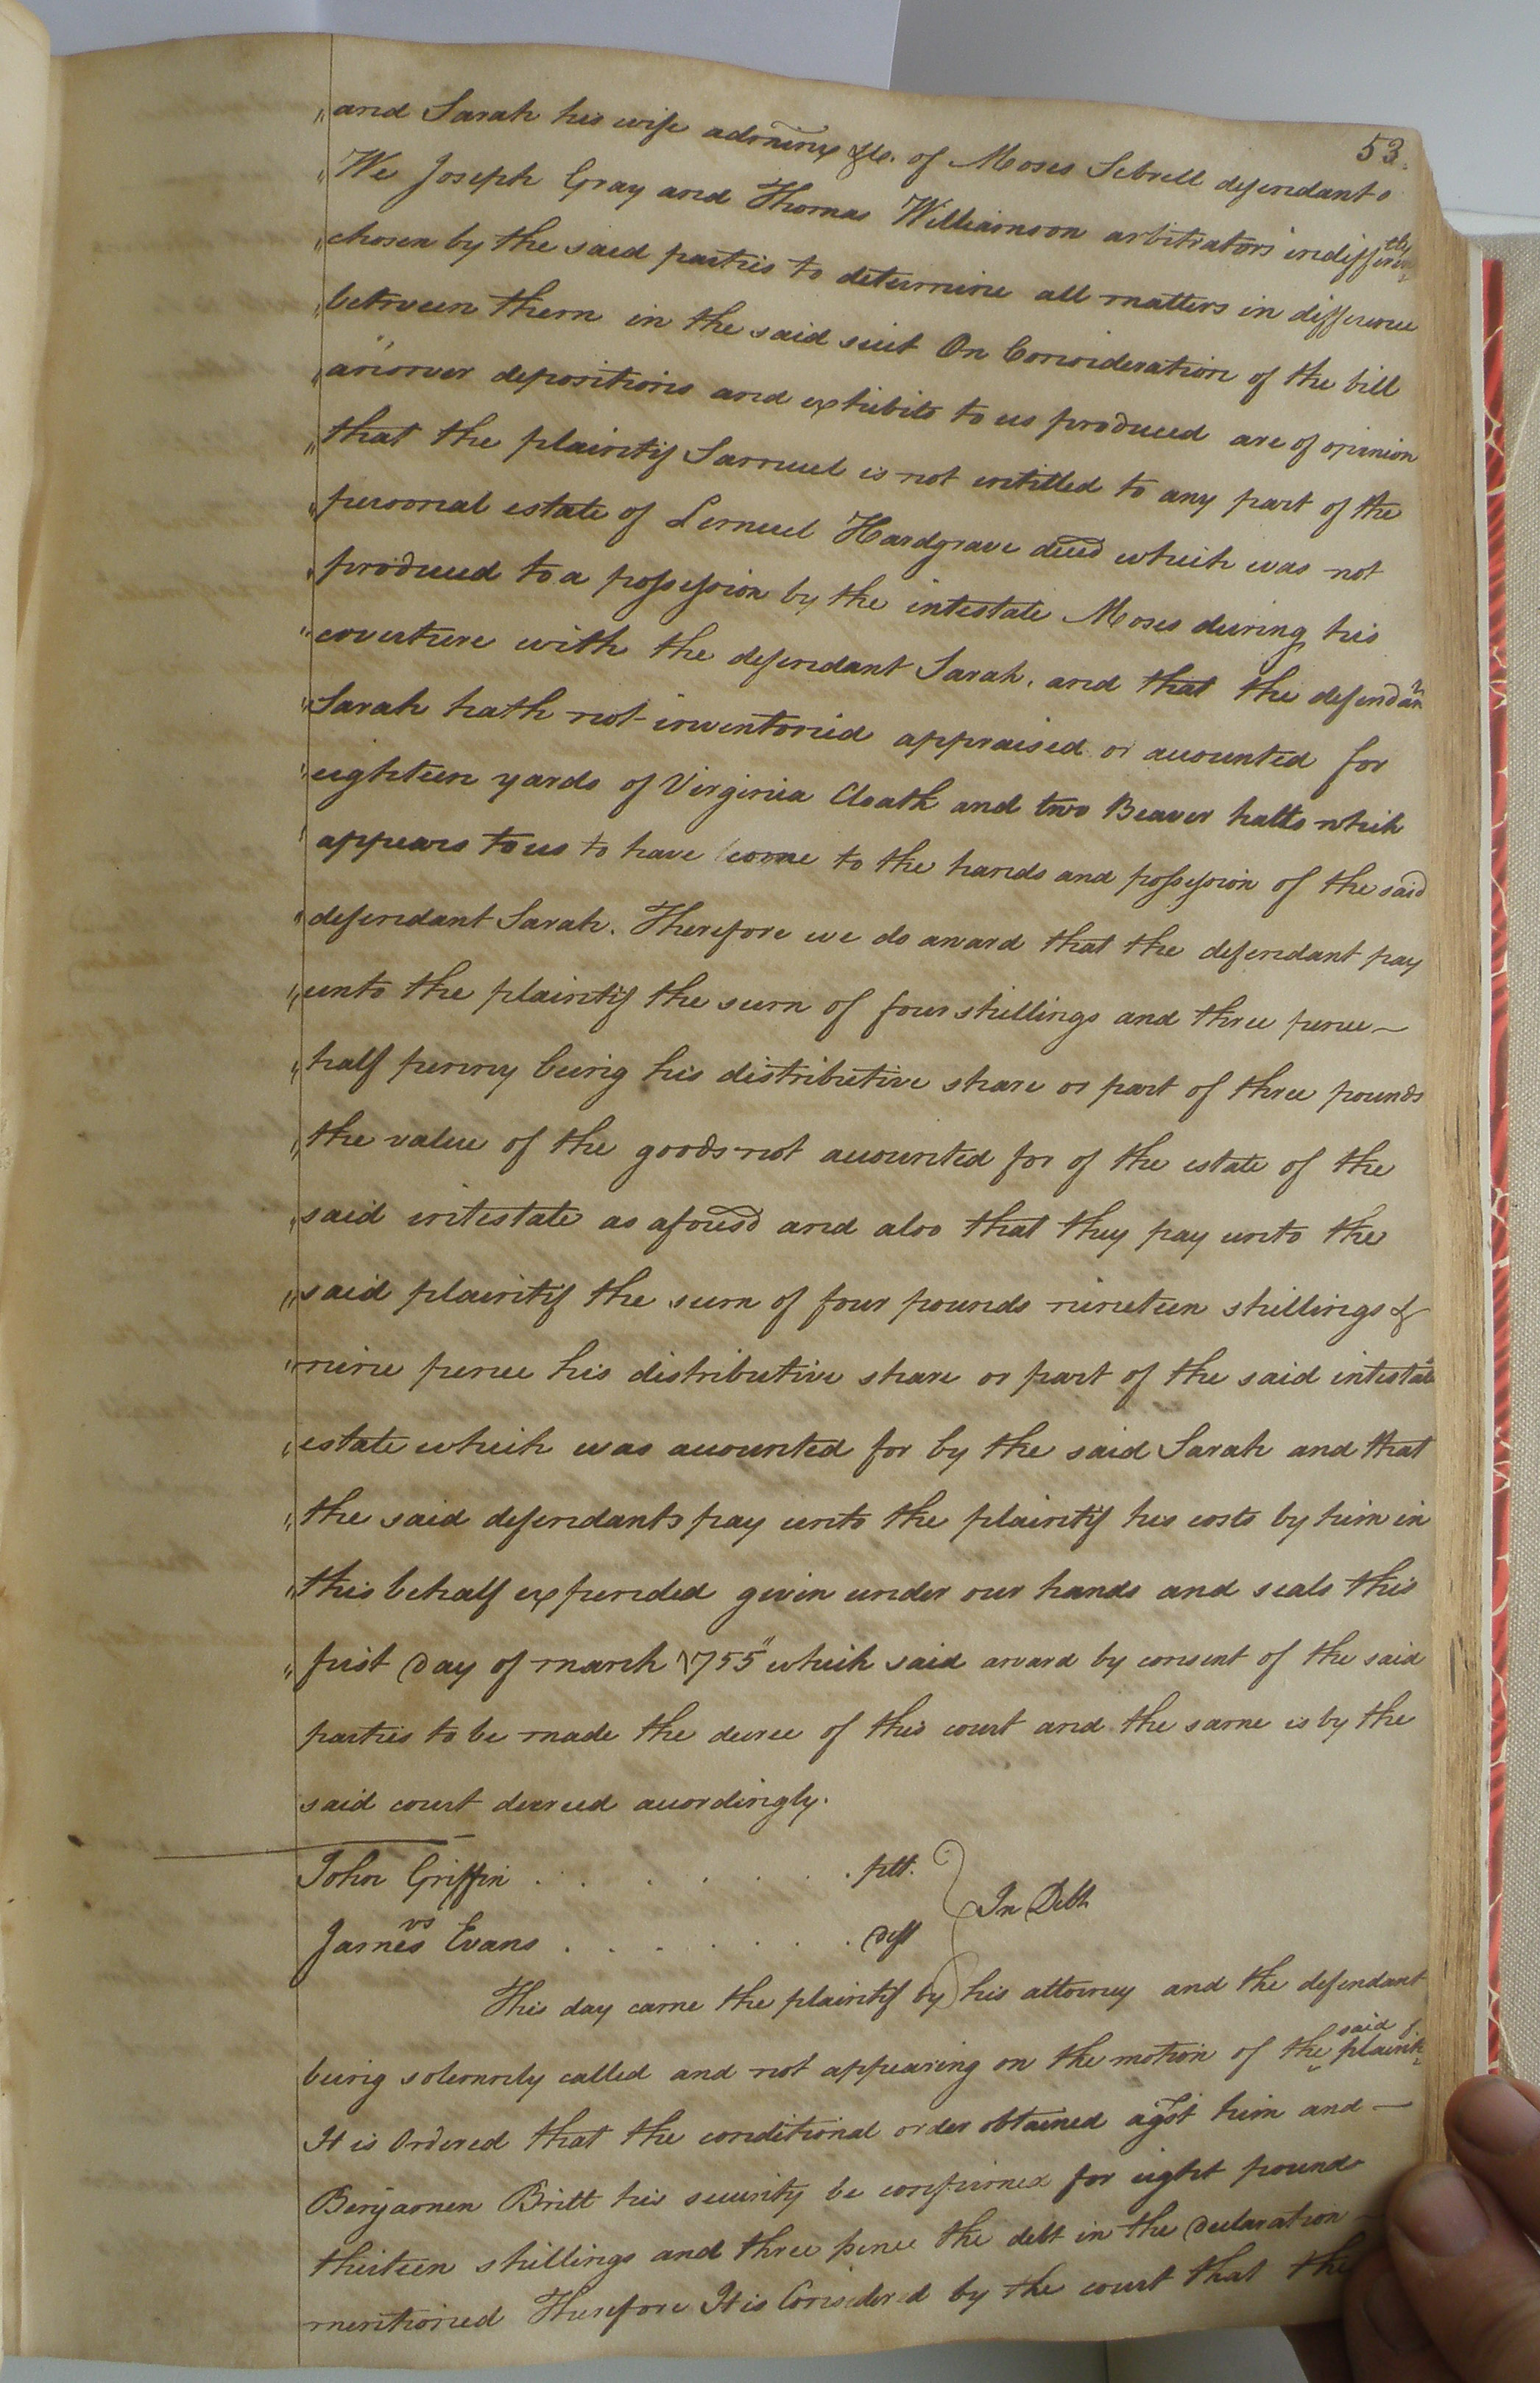 53.
"and Sarah his wife adminx &c. of Moses Sebrell defendants
"We Joseph Gray and Thomas Williamson arbitrators indifferently
"chosen by the said parties to determine all matters in difference
"between them in the said suit On Consideration of the bill
"answer depositions and exhibits to us produced are of opinion
"that the plaintif Samuel is not intitled to any part of the
"personal estate of Lemuel Hardgrave deced which was not
"produced to a possession by the intestate Moses during his
"coverture with the defendant Sarah. and that the defendant
"Sarah hath not inventoried appraised or accounted for
"eighteen yards of Virginia Cloath and two Beaver hatts which
"appears to us to have come to the hands and possession of the said
"defendant Sarah. Therefore we do award that the defendant pay
"unto the plaintif the sum of four shillings and three pence—
"half penny being his distributive share or part of three pounds
"the value of the goods not accounted for of the estate of the
"said intestate as aforesd and also that they pay unto the
"said plaintif the sum of four pounds nineteen shillings &
"nine pence his distributive share or part of the said intestate
"estate which was accounted for by the said Sarah and that
"the said defendants pay unto the plaintif his costs by him in
"this behalf expended given under our hands and seals this
"first day of march 1755" which said award by consent of the said
parties to be made the decree of this court and the same is by the
said court decreed accordingly.
John Griffin . . . . . . . plt.
vs In Debt
James Evans . . . . . . . deft
This day came the plaintif by his attorney and the defendant
being solemnly called and not appearing on the motion of the said plaintif
It is Ordered that the conditional order obtained agst him and—
Benjamen Britt his security be confirmed for eight pound
thirteen shillings and three pence the debt in the declaration—
mentioned Therefore It is Considered by the court that the